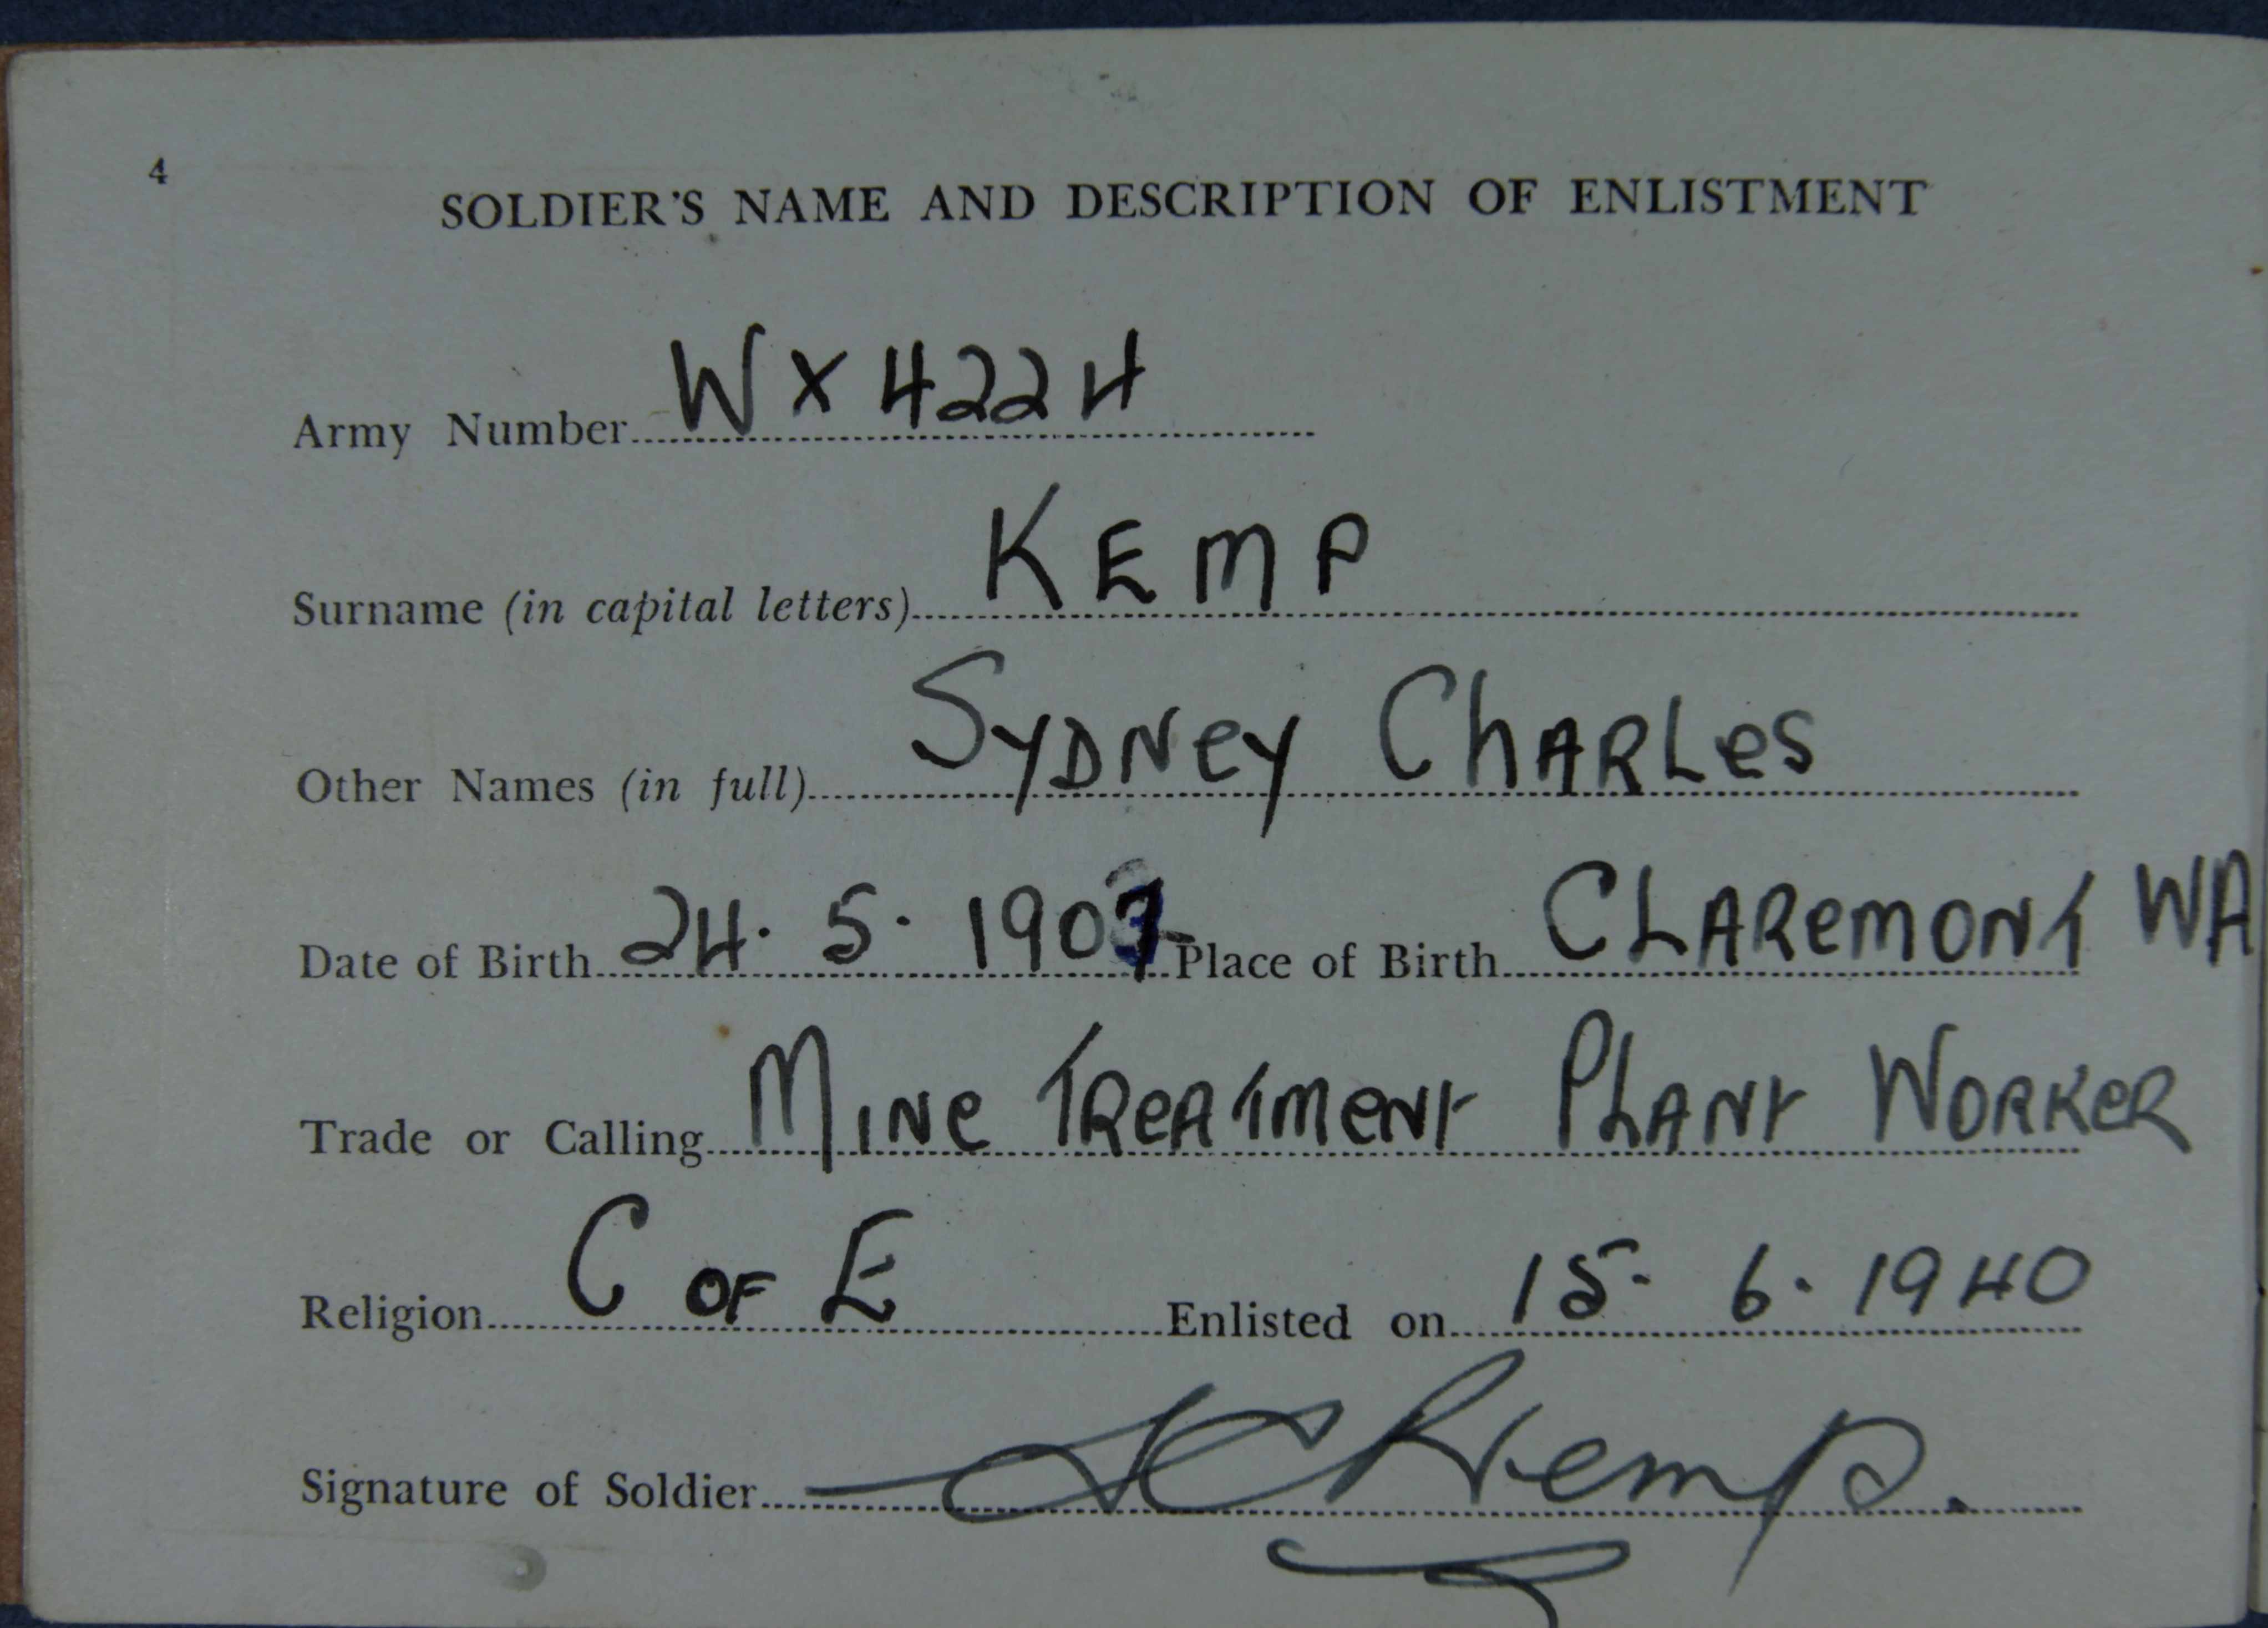 4
SOLDIER'S NAME AND DESCRIPTION OF ENLISTMENT
Army Number WX4224
Surname (in capital letters) KEMP
Other Names (in full) SYDNEY CHARLES
Date of Birth 24. 5. 1907 Place of Birth CLAREMONT WA
Trade or Calling MINE TREATMENT PLANT WORKER
Religion C OF E Enlisted on 15. 6. 1940
Signature of Soldier S C Kemp.